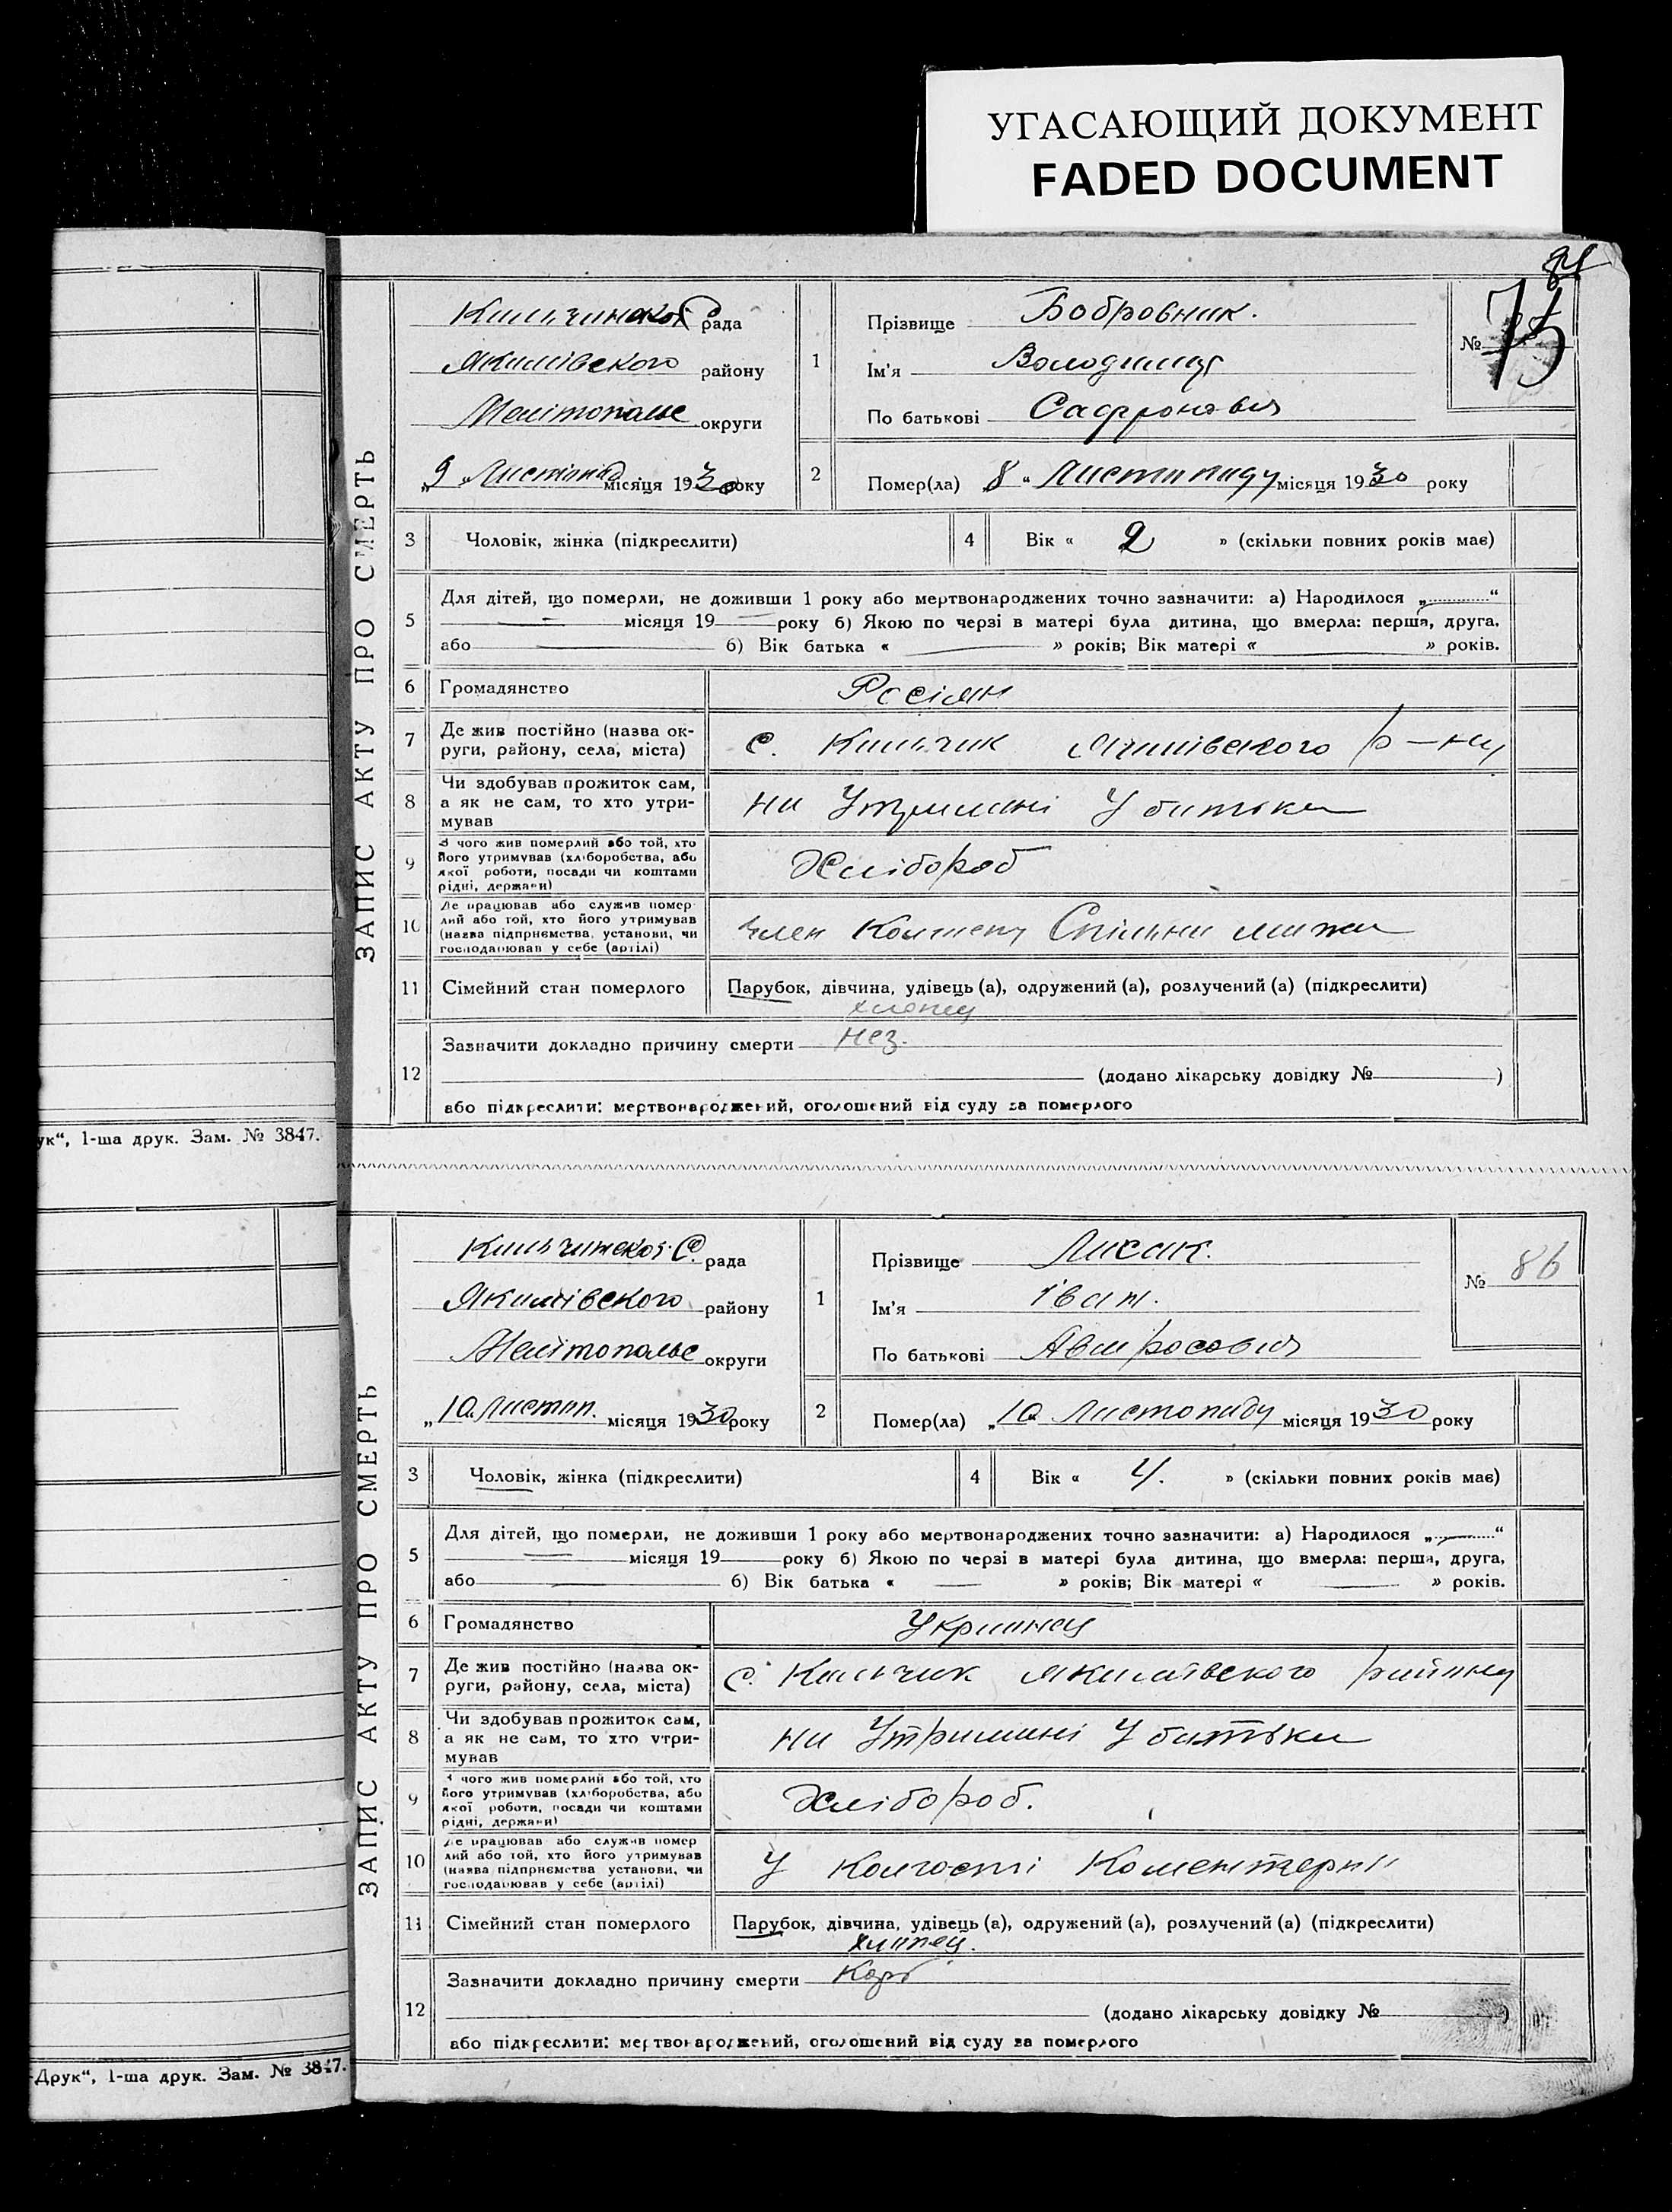 УГАСАЮЩИЙ ДОКУМЕНТ
FADED DOCUMENT
ЗАПИС АКТУ ПРО СМЕРТЬ
рада
Якимівского району
Мелітопольс округи
„9„ Листопад місяця 1930 року
1
Прізвище Бобровник.
Ім'я Володимир
По батькові Сафронович
№ 75
2
Помер(ла) 8 “ Листопаду місяця 1930 року
3 Чоловік, жінка (підкреслити)
4 Вік « 2 » (скільки повних років має)
5
Для дітей, що померли, не доживши 1 року або мертвонароджених точно зазначити: а) Народилося „ “
місяця 19 року б) Якою по черзі в матері була дитина, що вмерла: перша, друга,
або б) Вік батька « » років; Вік матері « » років.
6 Громадянство Росіян
7
Де жив постійно (назва ок-
руги, району, села, міста)
с. Кильчик Якимівского р-ну
8
Чи здобував прожиток сам,
а як не сам, то хто утри-
мував
на Утримані У батька
9
З чого жив померлий або той, хто
його утримував (хліборобства, або
якої роботи, посади чи коштами
рідні, держави)
Хлібороб
10
Де працював або служив помер
лий або той, хто його утримував
(назва підприємства, установи, чи
господарював у себе (артілі)
член Спільни
11 Сімейний стан померлого
Парубок, дівчина, удівець (а), одружений (а), розлучений (а) (підкреслити)
хлопец
12
Зазначити докладно причину смерти нез.
(додано лікарську довідку № )
або підкреслити: мертвонароджений, оголошений від суду за померлого
ук“, 1-ша друк. Зам. № 3847.
ЗАПИС АКТУ ПРО СМЕРТЬ
Кильчинскої С. рада
Якимівского району
Мелітопольс округи
„10 Листоп. місяця 1930 року
1
Прізвище Лисак.
Ім'я Іван.
По батькові
№ 86
2
Помер(ла) „10 Листопаду місяця 1930 року
3 Чоловік, жінка (підкреслити)
4 Вік « 4. » (скільки повних років має)
5
Для дітей, що померли, не доживши 1 року або мертвонароджених точно зазначити: а) Народилося „ “
місяця 19 року б) Якою по черзі в матері була дитина, що вмерла: перша, друга,
або б) Вік батька « » років; Вік матері « » років.
6 Громадянство Украинец
7
Де жив постійно (назва ок-
руги, району, села, міста)
с. Кильчик Якимівского району
8
Чи здобував прожиток сам,
а як не сам, то хто утри-
мував
на Утримані У батька
9
З чого жив померлий або той, хто
його утримував (хліборобства, або
якої роботи, посади чи коштами
рідні, держави)
Хлібороб.
10
Де працював або служив помер
лий або той, хто його утримував
(назва підприємства установи, чи
господарював у себе (артілі)
У
11 Сімейний стан померлого
Парубок, дівчина, удівець (а), одружений (а), розлучений (а) (підкреслити)
хлопец.
12
Зазначити докладно причину смерти
(додано лікарську довідку № )
або підкреслити: мертвонароджений, оголошений від суду за померлого
-Друк“, 1-ша друк. Зам. № 3847.